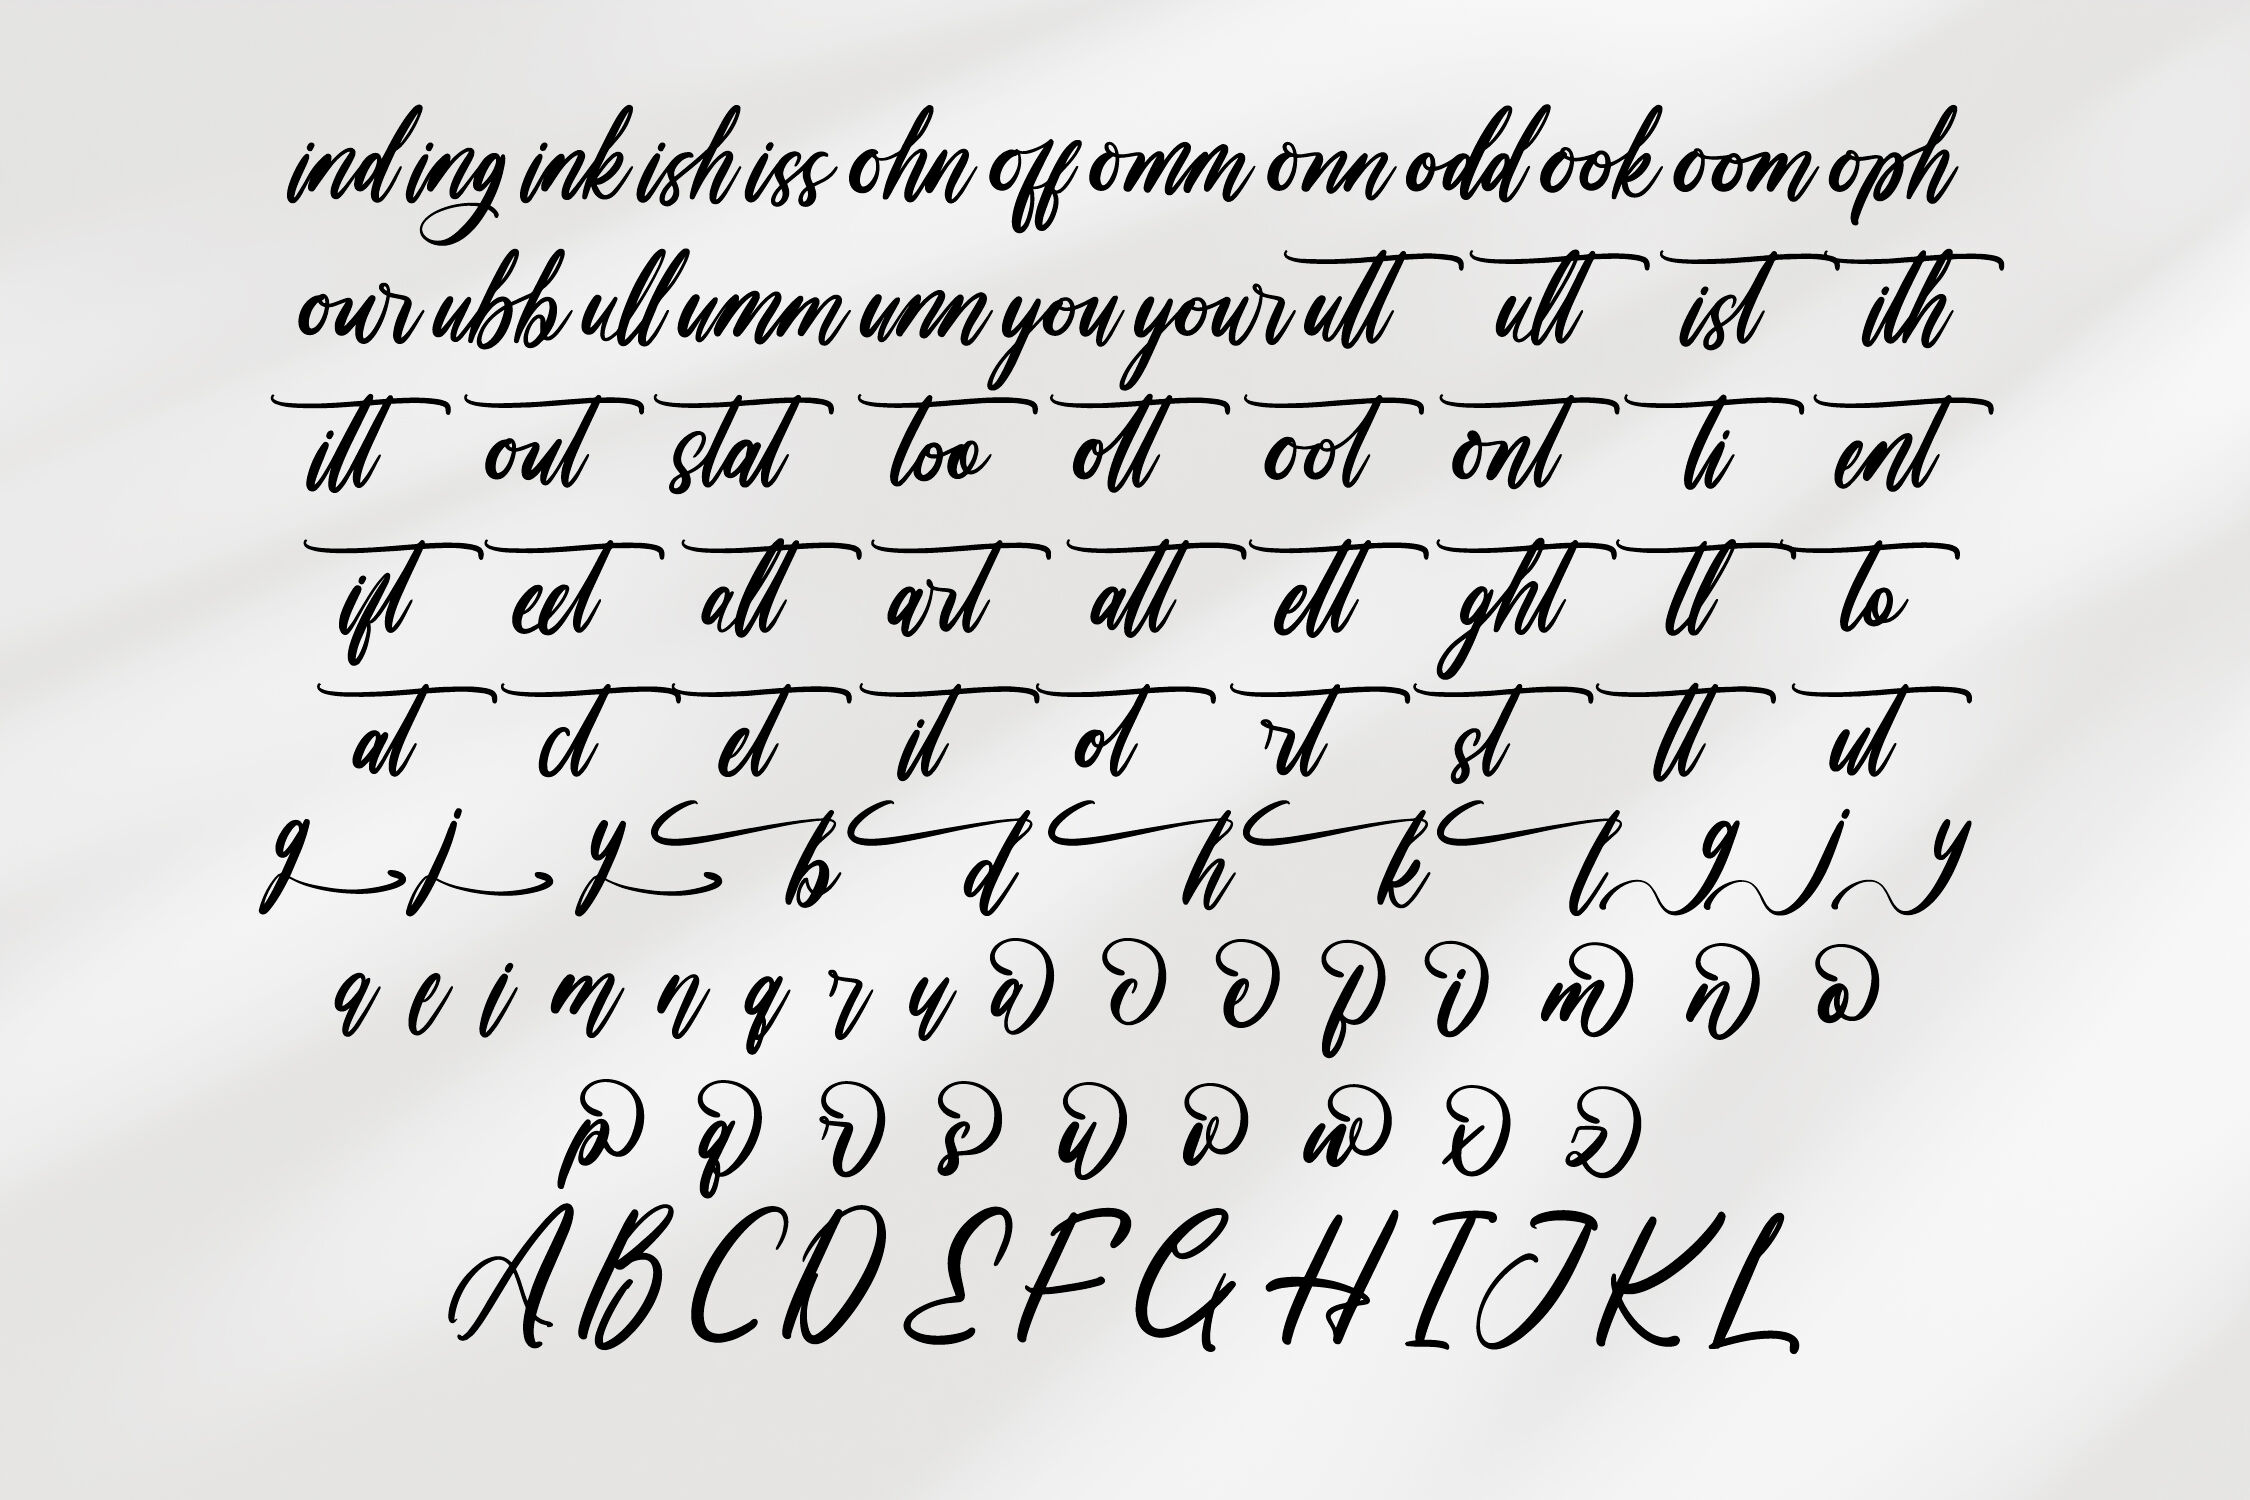 ind ing ink ish iss ohn off omm onn odd ook oom oph
our ubb ull umm unn you your utt ult ist ith
itt out stat too ott oot ont ti ent
ift eet alt art att ett ght tl to
at ct et it ot rt st tt ut
g j y b d h k l g j y
a e i m n q r u a c e f i m n o
p q r s u v w x z
A B C D E F G H I J K L